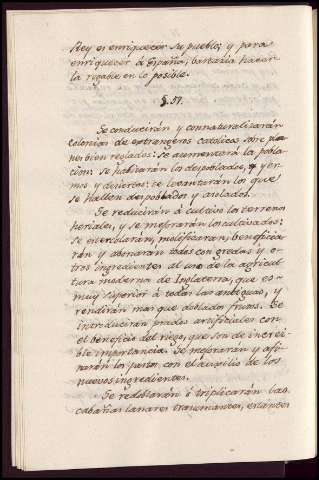 Rey es enriquecer su pueblo; y para
enriquecer à España, bastaria hacer
la regable en lo posible.
§. 51.
Se conducirán y connaturalizarán
colonias de estrangeros catolicos sobre
bien reglados: se aumentará la pobla-
cion: se habitarán los despoblados, y yer-
mos y desiertos: se levantarán los que
se hallen despoblados y aislados.
Se reducirán à cultivo los terrenos
heriales, y se mejorarán los cultivados:
se mezclarán, molificarán, beneficia-
rán y abonarán todos con gredas y o-
tros ingredientes al uso de la agricul-
tura moderna de Inglaterra, que es
muy superior à todas las antiguas, y
rendirán mas que doblados frutos. Se
introducirán prados artificiales con
el beneficio del riego, que son de increi-
ble importancia. Se mejorarán y afi-
narán los pastos con el auxilio de los
nuevos ingredientes.
Se redoblarán ò triplicarán las
cabañas lanares transumantes, estantes